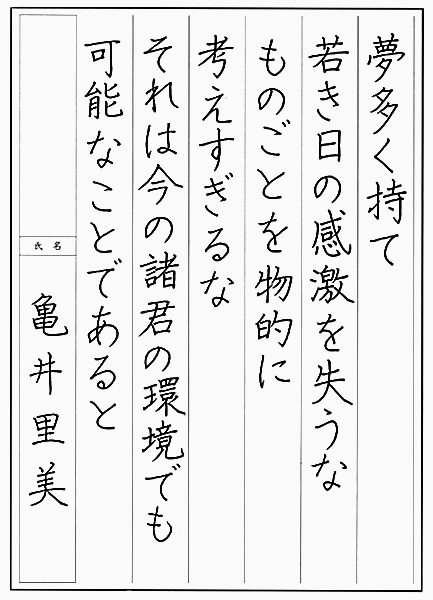 夢多く持て
若き日の感激を失うな
ものごとを物的に
考えすぎるな
それは今の諸君の環境でも
可能なことであると
氏名
亀井里美